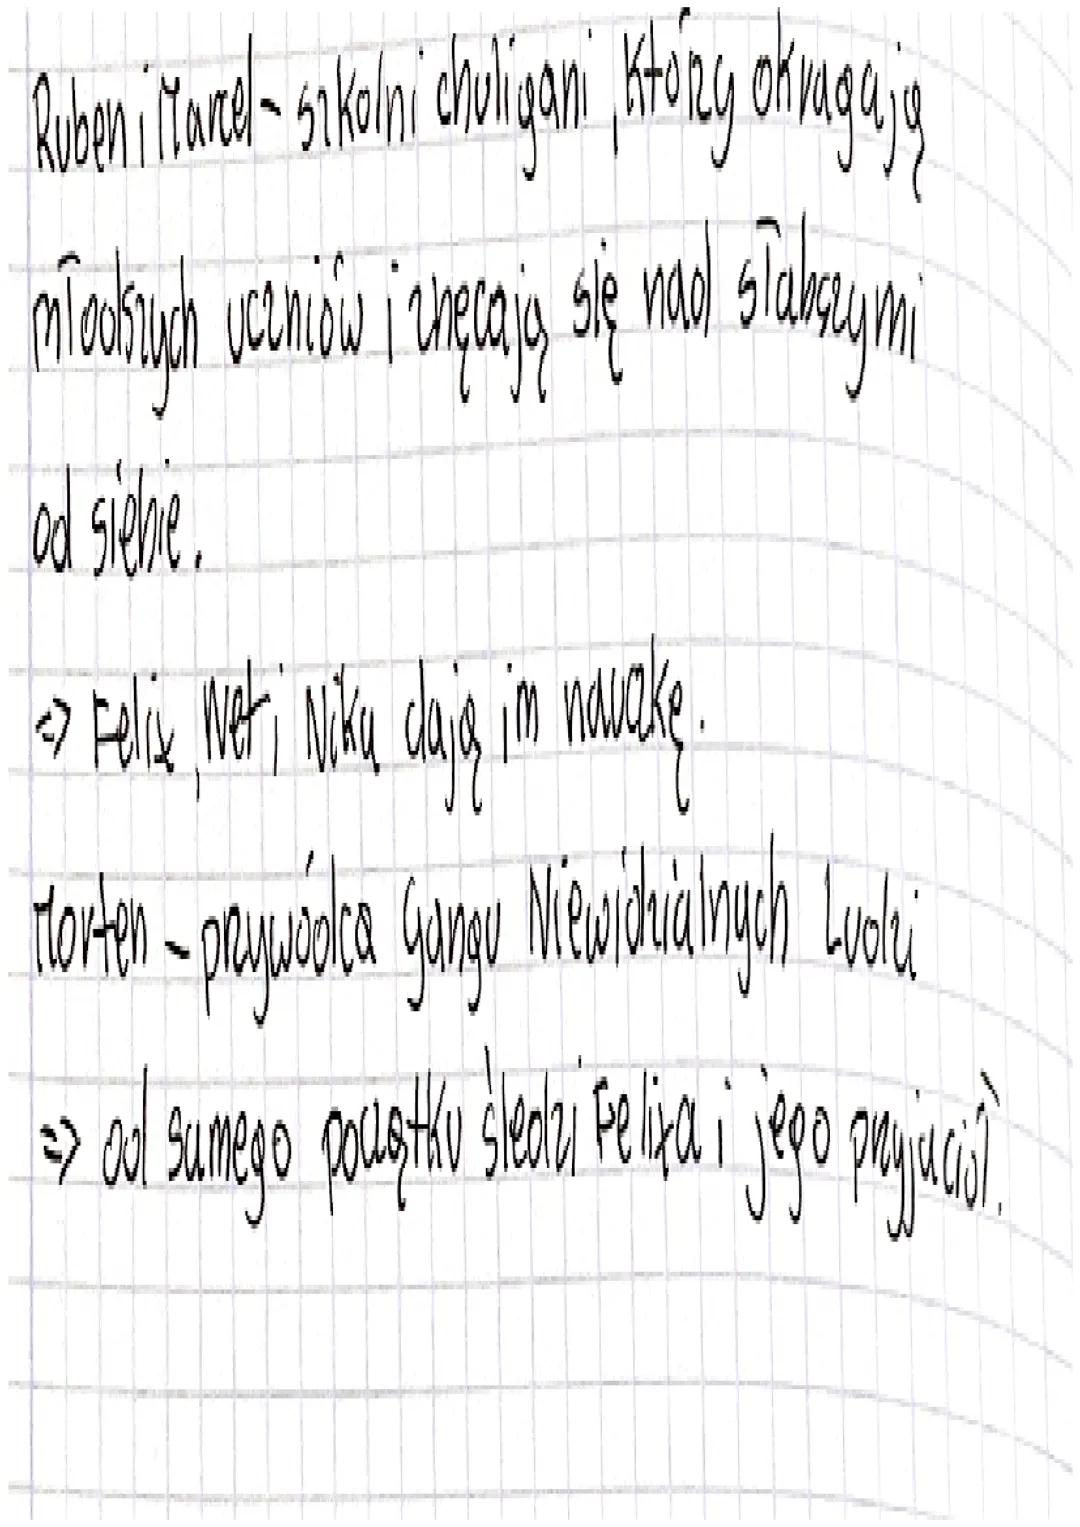 Ruben i Marcel - szkolni chuligani, którzy okradają
młodszych uczniów i znęcają się nad słabszymi
od siebie.
=> Felix, Net i Nika dają im nauczkę.
Morten - przywódca Gangu Niewidzialnych Ludzi
=> od samego początku śledzi Felixa i jego przyjaciół.